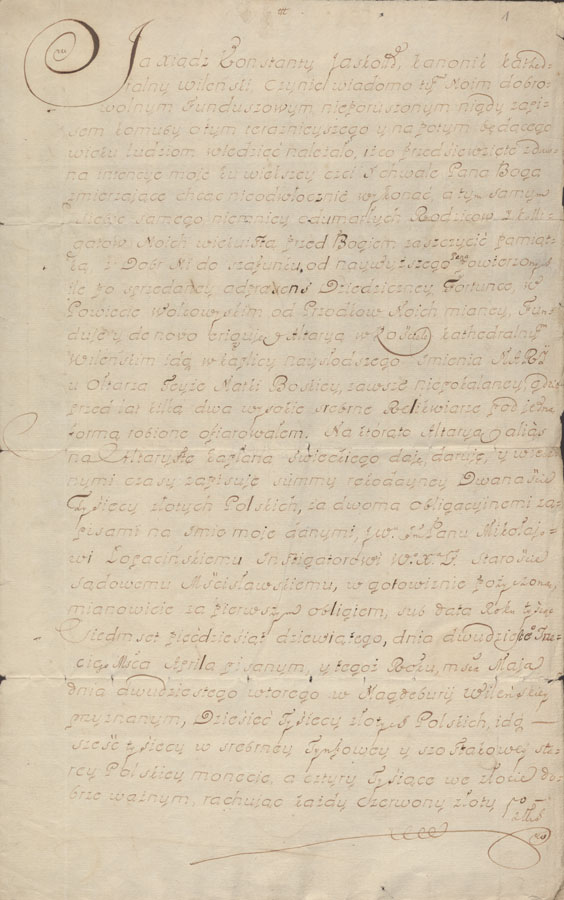 1
Ja Xiądz Konstanty Jasło, kanonik kathed-
ralny wileński, Czynię wiadomo tym Moim dobro-
wolnym Funduszowym nieporuszonym nigdy zapi-
sem komuby o tym teraznieyszego y na potym będącego
wieku ludziom wiedzieć należało, iż co przedsięwzięte
na intencye moje ku większey czci y chwale Pana Boga
zmierzaiące chcąc nieodwłocznie wykonać, a tym samym
samego niemniey z dumarłych Rodziców, y Kolli-
gatow Moich wiekuistą przed Bogiem zaszczycić pamiąt-
ką, z Dobr Mi do szafunku od naywyższego Pana powierzonych
ile po sprzedaney Dziedziczney Fortunce, w
Powiecie Wołkowyskim od Przodków Moich mianey, Fun-
duję y de novo eriguję Altaryą w Kościele Kathedralnym
Wileńskim idą w kaplicy nayslodszego Imienia MARYI
u Ołtarza Teyże Matki Boskiey, zawsze niepokalaney, gdzie
przed lat kilką dwa wysokie srebrne Relikwiarze pod jedną
formą robione ofiarowałem. Na którąto Altaryą alias
na Altarystę kapłana świeckiego daję, daruję, y wiecz-
nymi czasy zapisuję summy rękodayney Dwanaście
Tysięcy złotych Polskich, za dwoma obligacyinemi za-
pisami na imie moje danymi, J.W. JPanu Mikołajo-
wi Łopacińskiemu Instigatorowi W.X.L. Staroście
sądowemu Mścisławskiemu, w gotowiznie pożyczoną,
mianowicie za pierwszym obligiem, sub data Roku tysiąc
Siedmset pięćdziesiąt dziewiątego, dnia dwudziestego Trze-
ciego Msca Aprila pisanym, y tegoż Roku, msca Maja
dnia dwudziestego wtorego w Magdeburij Wileńskiey
przyznanym, Dziesięć Tysięcy złotych Polskich, idą —
sześć tysięcy w srebrney Tynfowey y szostakowey sta-
rey Polskiey monecie, a cztyry Tysiące we złocie do-
brze ważnym, rachując każdy Czerwony złoty po